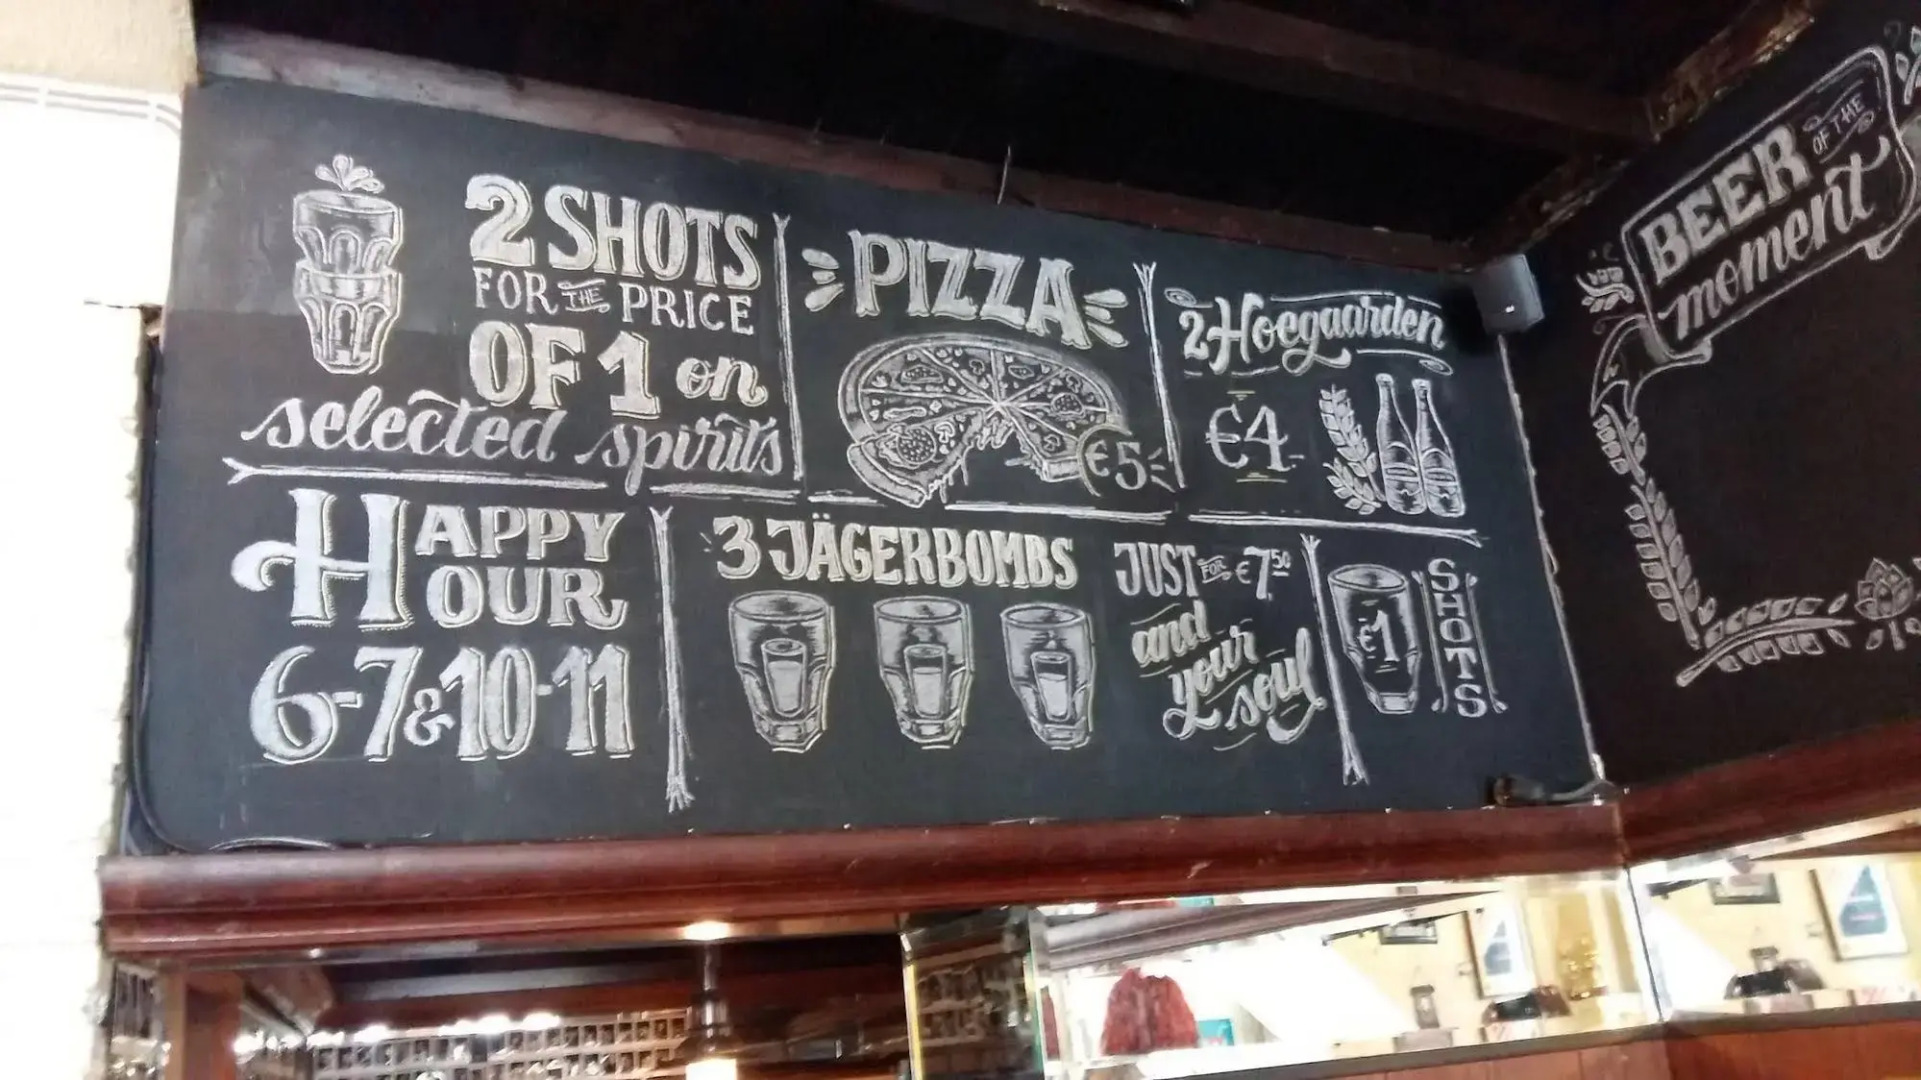 2 SHOTS
FOR THE PRICE
OF 1 on
selected spirits
PIZZA
€5
2 Hoegaarden
€4
HAPPY
HOUR
6-7 & 10-11
3 JÄGERBOMBS
JUST FOR €7.50
and
your
soul
€1
SHOTS
BEER
OF THE
moment